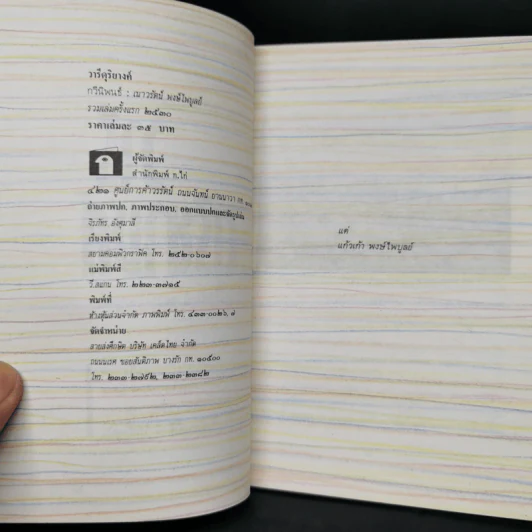 วารีดุริยางค์
กวีนิพนธ์ : เนาวรัตน์ พงษ์ไพบูลย์
รวมเล่มครั้งแรก ๒๕๓๐
ราคาเล่มละ ๓๕ บาท
ผู้จัดพิมพ์
สำนักพิมพ์ ก.ไก่
๔๒๑ ศูนย์การค้าวรรัตน์ ถนนจันทน์ ยานนาวา กท.
ถ่ายภาพปก, ภาพประกอบ, ออกแบบปกและจัดรูปเล่ม
จิรภัทร อังศุมาลี
เรียงพิมพ์
สยามคอมพิวกราฟิค โทร. ๒๕๒-๐๖๐๗
แม่พิมพ์สี
วี.สแกน โทร. ๒๒๓-๓๗๑๕
พิมพ์ที่
ห้างหุ้นส่วนจำกัด ภาพพิมพ์ โทร. ๔๓๓-๐๐๒๖, ๗
จัดจำหน่าย
สายส่งศึกษิต บริษัท เคล็ดไทย จำกัด
ถนนนเรศ ซอยสันติภาพ บางรัก กท. ๑๐๕๐๐
โทร. ๒๓๓-๒๗๘๒, ๒๓๓-๒๓๘๒
แด่
แก้วเก้า พงษ์ไพบูลย์